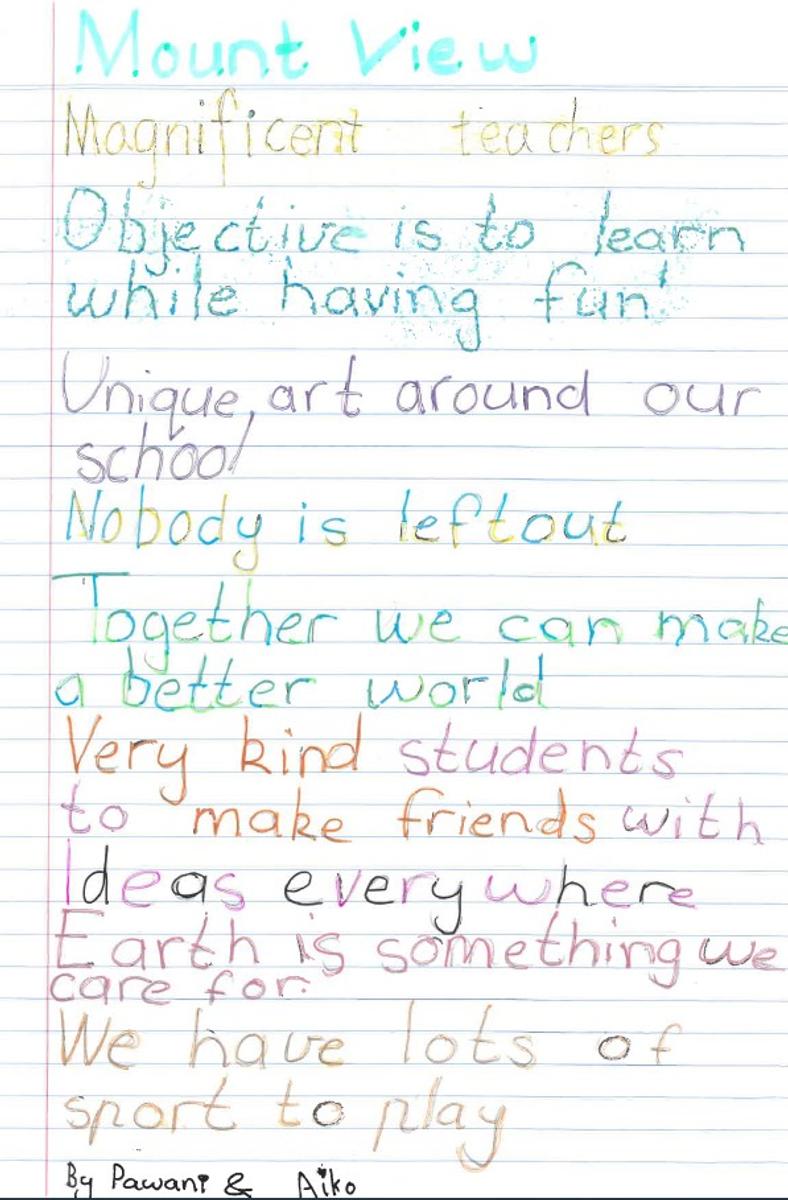 Mount View
Magnificent teachers
Objective is to learn
while having fun!
Unique, art around our
school
Nobody is leftout
Together we can make
a better world
Very kind students
to make friends with
Ideas everywhere
Earth is something we
care for.
We have lots of
sport to play
By Pawani & Aiko